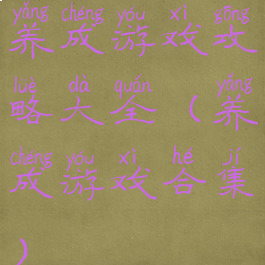 yǎng chéng yóu xì gōng
养成游戏攻
luè dà quán yǎng
略大全(养
chéng yóu xì hé jí
成游戏合集
)